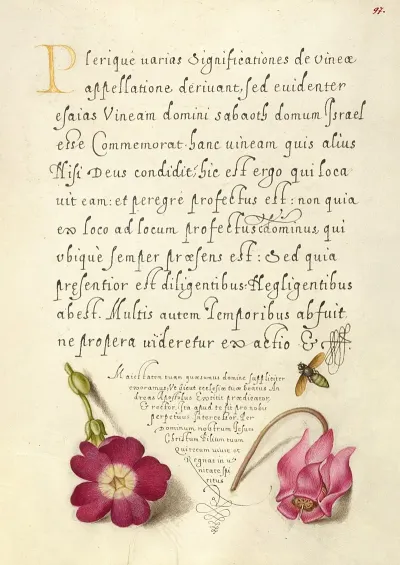 97.
Plerique varias significationes de vineæ
appellatione derivant, sed evidenter
esaias Vineam domini sabaoth domum Israel
esse Commemorat. hanc vineam quis alius
Nisi Deus condidit; hic est ergo qui loca
vit eam: et peregre profectus est: non quia
ex loco ad locum profectus dominus, qui
ubique semper præsens est: Sed quia
præsentior est diligentibus. Negligentibus
abest. Multis autem Temporibus abfuit
ne propera videretur exactio &
Maiestatem tuam quæsumus domine suppliciter
exoramus, ut sicut ecclesiæ tuæ beatus An
dreas Apostolus Extitit prædicator,
& rector, ita apud te sit pro nobis
perpetuus Intercessor. Per
dominum nostrum Jesum
Christum Filium tuum
Qui tecum vivit et
Regnat in u
nitate spi
ritus